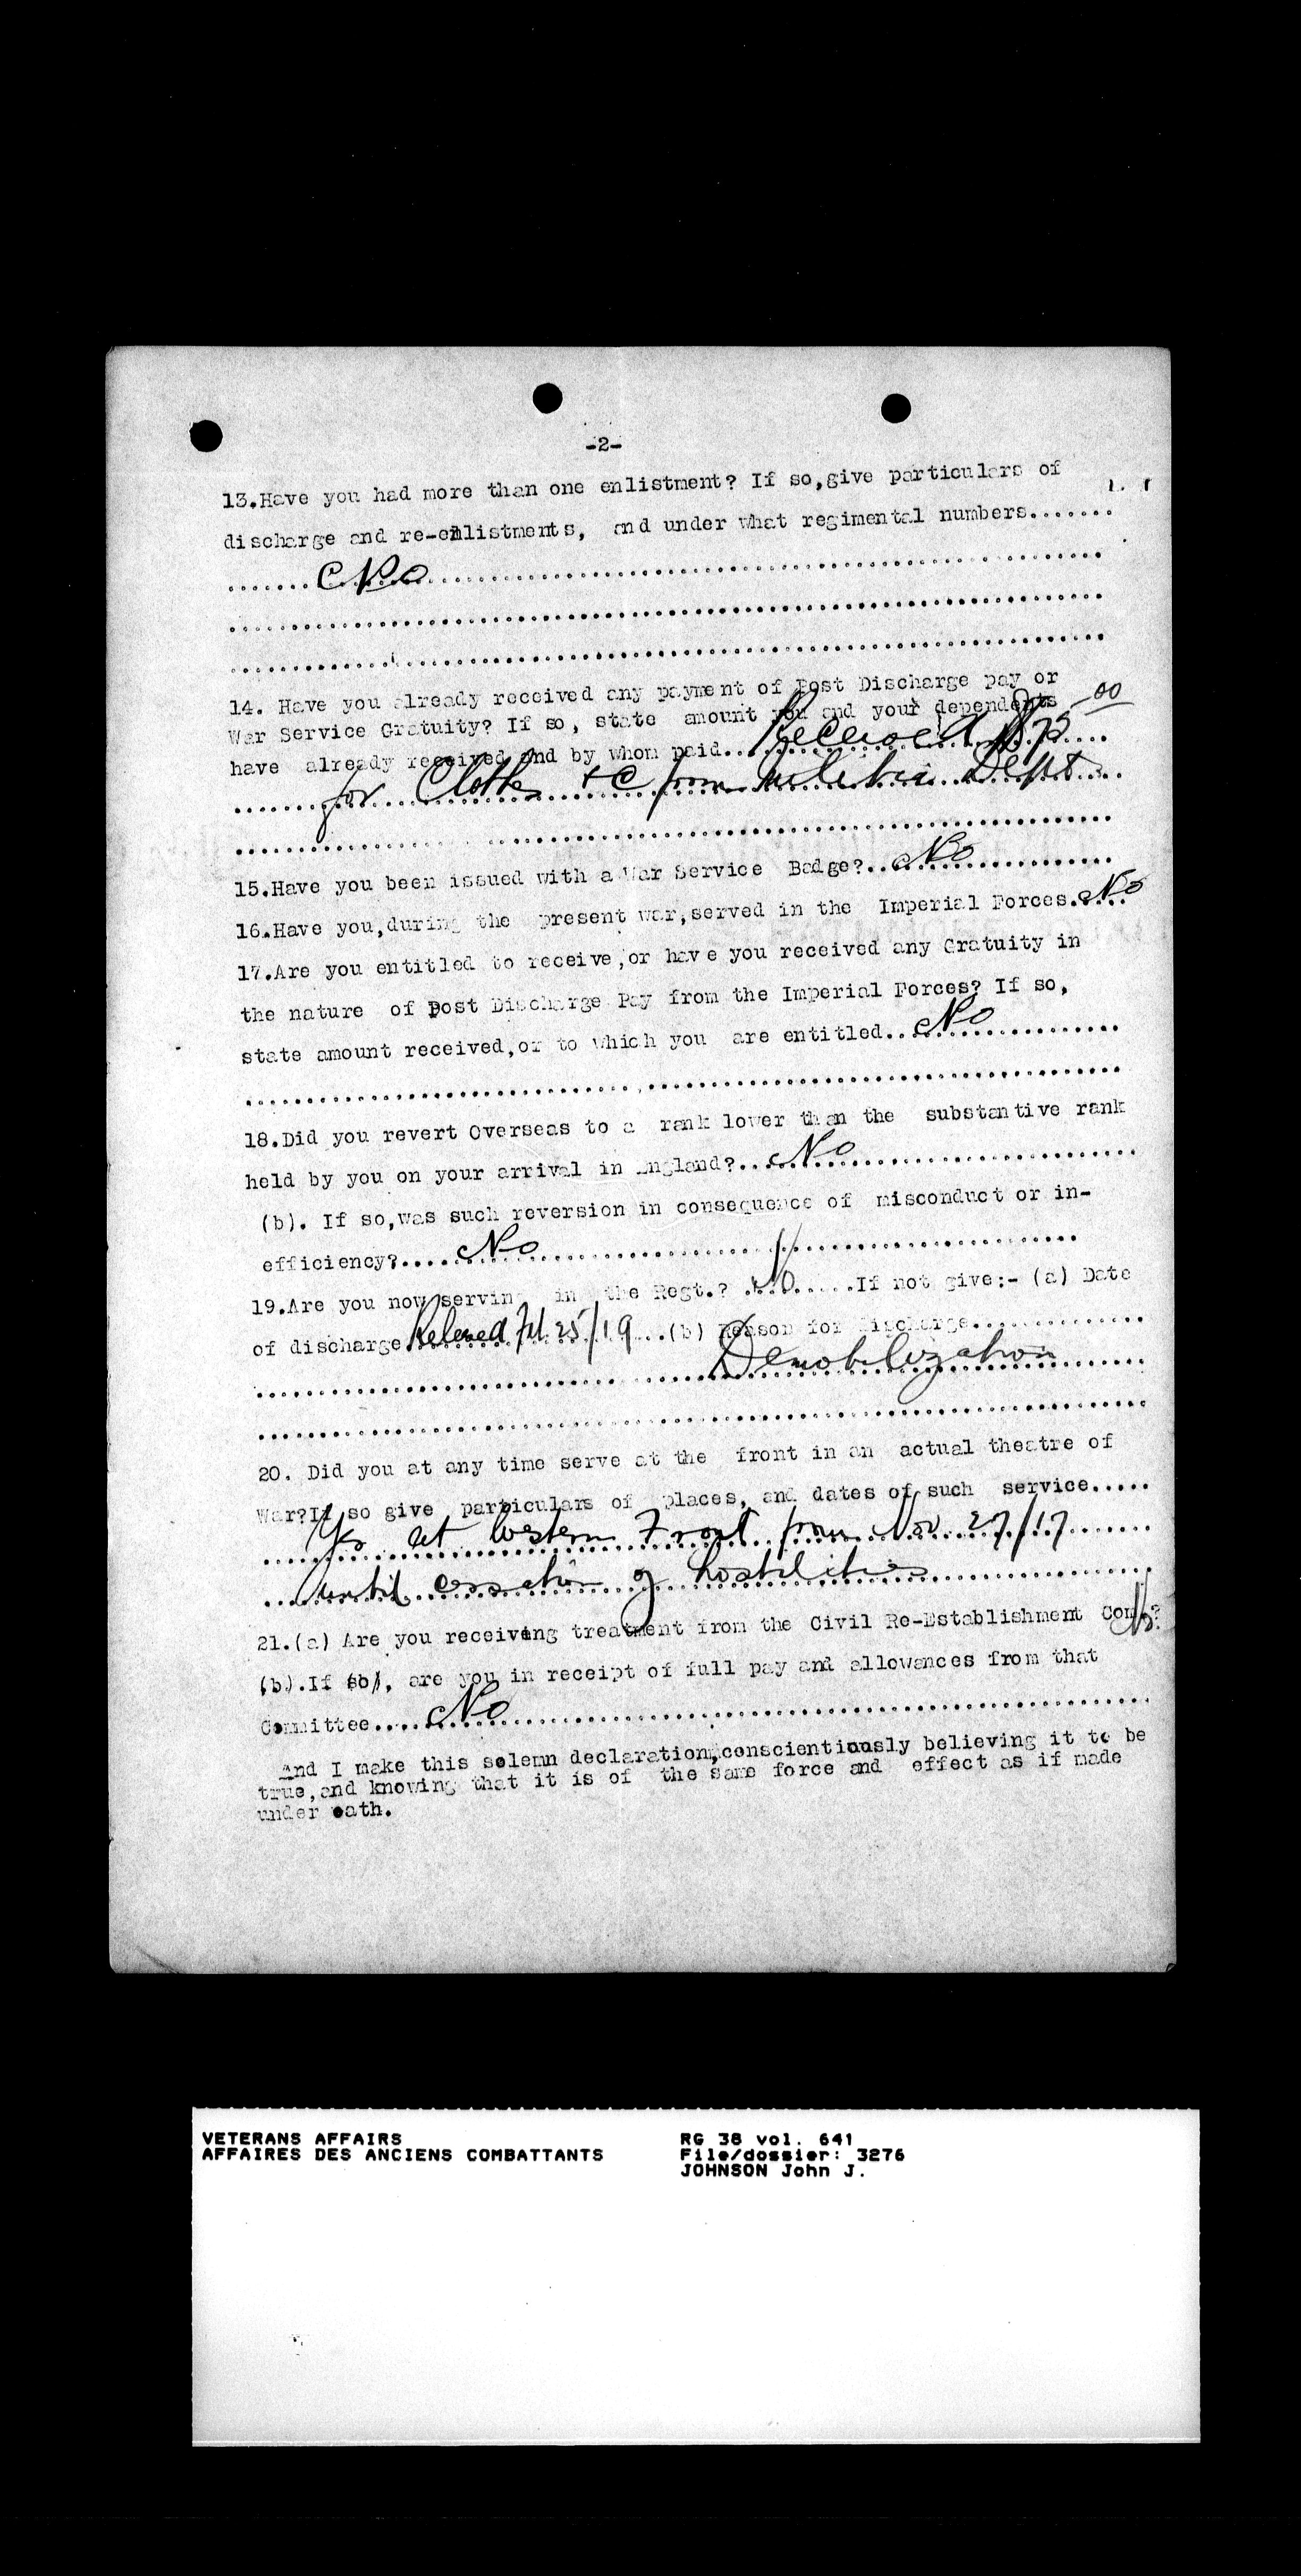 -2-
13.Have you had more than one enlistment? If so,give particulars of
discharge and re-enlistments, and under what regimental numbers.......
No
14. Have you already received any payment of Post Discharge pay or
War Service Gratuity? If so, state amount you and your dependents
have already received and by whom paid.. Received $72.00
for Clothes &c from Militia Dept
15.Have you been issued with a War Service Badge?.. No
16.Have you,during the present war,served in the Imperial Forces. No
17.Are you entitled to receive,or have you received any Gratuity in
the nature of Post Discharge Pay from the Imperial Forces? If so,
state amount received,or to which you are entitled.. No
18.Did you revert Overseas to a rank lower than the substantive rank
held by you on your arrival in England?.. No
(b). If so,was such reversion in consequence of misconduct or in-
efficiency?.... No
19.Are you now serving in the Regt.? No .....If not give:- (a) Date
of discharge. Released Feb 25/19 ...(b) Reason for Discharge..............
Demobilization
20. Did you at any time serve at the front in an actual theatre of
War?If so give particulars of places, and dates of such service.....
Yes at Western Front from Nov 27/17
until cessation of hostilities
21.(a) Are you receiving treatment from the Civil Re-Establishment Com.? No
(b).If so, are you in receipt of full pay and allowances from that
Committee.... No
And I make this solemn declaration,conscientiously believing it to be
true,and knowing that it is of the same force and effect as if made
under oath.
VETERANS AFFAIRS
AFFAIRES DES ANCIENS COMBATTANTS
RG 38 vol. 641
File/dossier: 3276
JOHNSON John J.